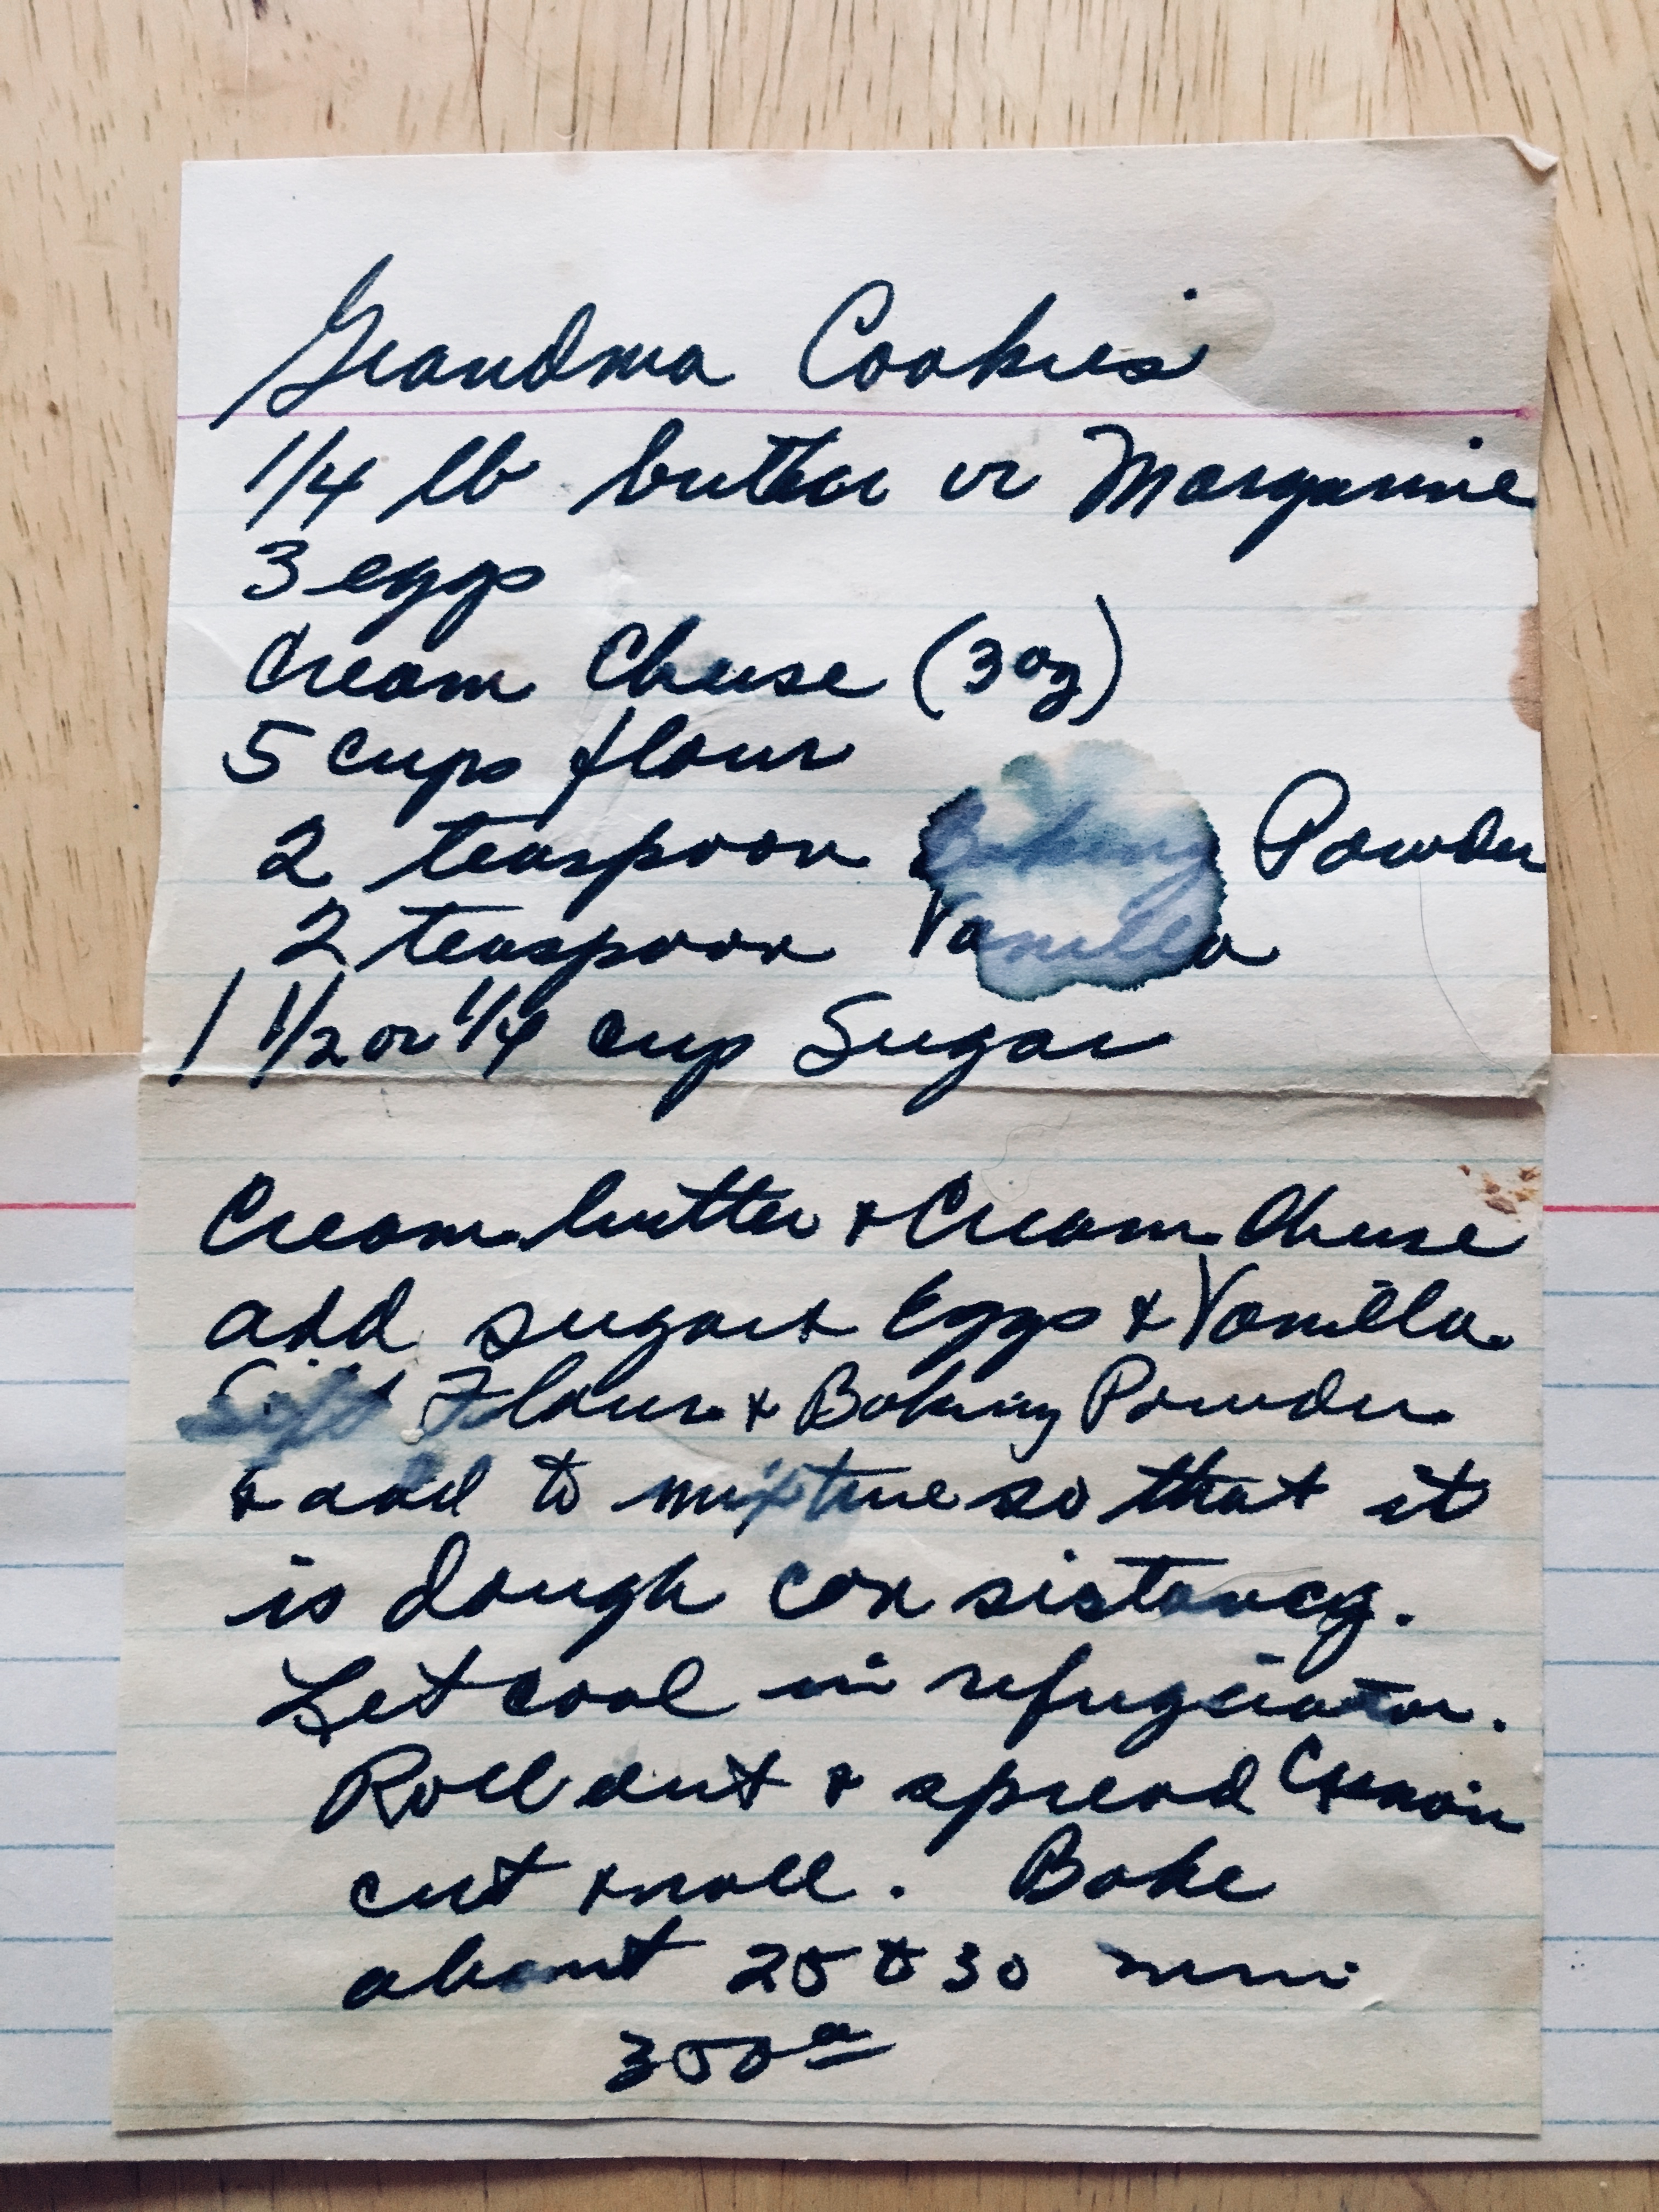 Grandma Cookies
1/4 lb butter or Margarine
3 eggs
Cream Cheese (3 oz)
5 cups flour
2 teaspoon Baking Powder
2 teaspoon Vanilla
1 1/2 or 1/4 cup Sugar
Cream butter & Cream Cheese
add sugar & Eggs & Vanilla.
Sift Flour & Baking Powder
& add to mixture so that it
is dough consistancy.
Let cool in refrigerator.
Roll out & spread
cut & roll. Bake
about 25 to 30 min
300°